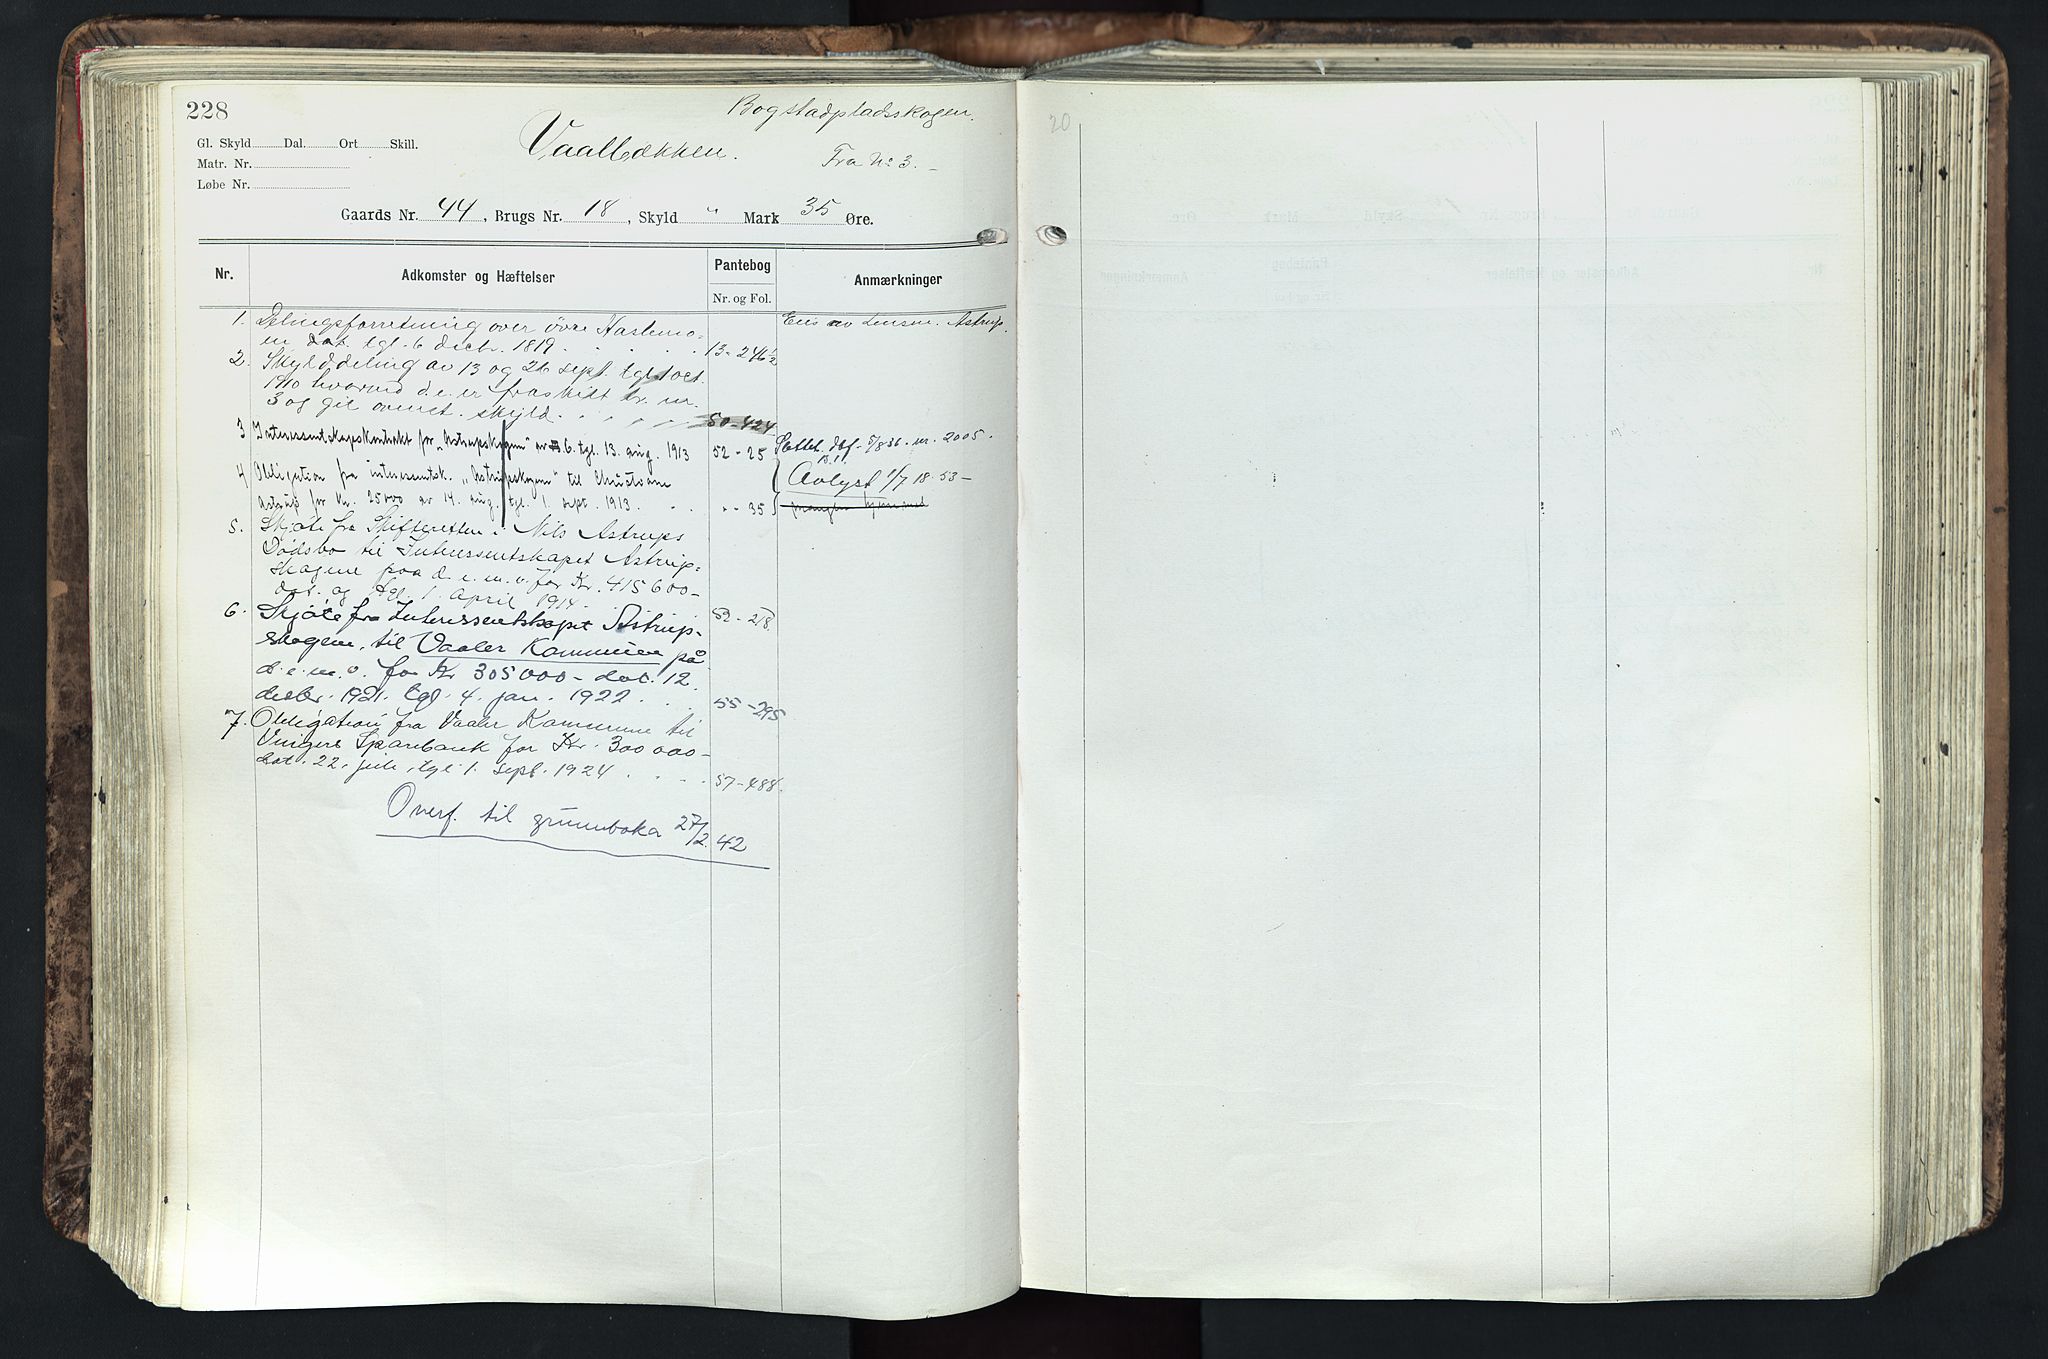 228
Bogstadpladsskogen.
Gl. Skyld Dal. Ort Skill.
Matr. Nr.
Løbe Nr.
Vaalbækken.
Fra No 3.
Gaards Nr. 44, Brugs Nr. 18, Skyld " Mark 35 Øre.
Nr. Adkomster og Hæftelser Pantebog Nr. og Fol. Anmærkninger
1. Delingsforretning over övre Haslemo- Eies av Lensm. Astrup.
en dat. tgl. 6 decbr. 1819. 13-246½
2. Skylddeling av 13 og 26 sept. tgl 1 oct.
1910 hvorved d. e. er fraskilt br. nr.
3 og git ovenst. skyld. 50-424
3 Interessentskapskontrakt for "Astrupskogene" av 6. tgl. 13. aug. 1913 52-25 Slettet dbf. 5/8 36. nr. 2005.
4 Obligation fra interessentsk. "Astrupskogene" til Christiane Avlyst 1/7 18. 53-
Astrup for Kr. 25000 av 14. aug. tgl. 1. sept. 1913. "-35
5. Skjöte fra Skifteretten i Nils Astrups
Dödsbo til Interessentskapet Astrup-
skogene paa d. e. m. v. for Kr. 415600-
dat. og tgl. 1. April 1914. 52-218.
6. Skjöte fra Interessentskapet Astrup-
skogene, til Vaaler Kommune på
d. e. m. v. for Kr 305000- dat. 12
decbr. 1921. tgl. 4. jan. 1922. 55-295
7. Obligation fra Vaaler Kommune til
Vingers Sparebank for Kr. 300000-
dat. 22. juli, tgl. 1. sept. 1924. 57-488.
Overf. til grunnboka 27/2. 42
20